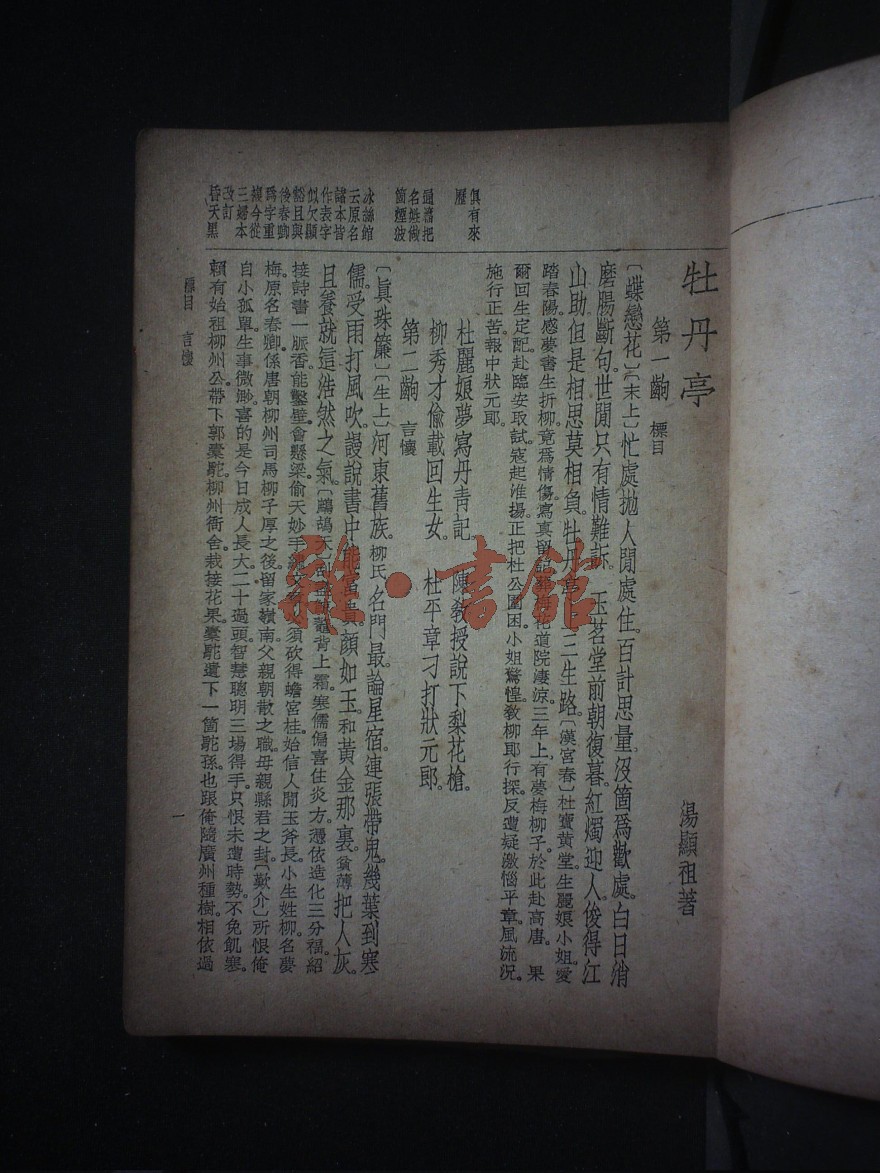 牡丹亭
湯顯祖著
第一齣 標目
〔蝶戀花〕〔末上〕忙處拋人閒處住。百計思量。沒箇爲歡處。白日消
磨腸斷句。世閒只有情難訴。玉茗堂前朝復暮。紅燭迎人。俊得江
山助。但是相思莫相負。牡丹亭上三生路。〔漢宮春〕杜寶黃堂。生麗娘小姐。愛
踏春陽。感夢書生折柳。竟爲情傷。寫真留記。葬梅花道院淒涼。三年上。有夢梅柳子。於此赴高唐。果
爾回生定配。赴臨安取試。寇起淮揚。正把杜公圍困。小姐驚惶。敎柳郎行探。反遭疑激惱平章。風流況。
施行正苦。報中狀元郎。
杜麗娘夢寫丹青記。 陳敎授說下梨花槍。
柳秀才偷載回生女。 杜平章刁打狀元郎。
第二齣 言懷
〔眞珠簾〕〔生上〕河東舊族。柳氏名門最。論星宿。連張帶鬼。幾葉到寒
儒。受雨打風吹。謾說書中能富貴。顏如玉。和黃金那裏。貧薄把人灰。
且養就這浩然之氣。〔鷓鴣天〕
鼇背上霜。寒儒偏喜住炎方。憑依造化三分福。紹
接詩書一脈香。能鑿壁。會懸梁。偷天妙手繡文章。必須砍得蟾宮桂。始信人閒玉斧長。小生姓柳。名夢
梅。原名春卿。係唐朝柳州司馬柳子厚之後。留家嶺南。父親朝散之職。母親縣君之封。〔歎介〕所恨俺
自小孤單。生事微渺。喜的是今日成人長大。二十過頭。智慧聰明。三場得手。只恨未遭時勢。不免飢寒。
賴有始祖柳州公。帶下郭橐駝。柳州衙舍。栽接花果。橐駝遺下一箇駝孫。也跟俺隨廣州種樹。相依過
俱有來
歷
通齋把
名姓做
箇煙波
冰絲館
云原名
諸本皆
作表字
似欠顯
豁且與
後春卿
爲字重
複今從
三婦本
改訂
昏天黑
標目 言懷
一
雜·書館